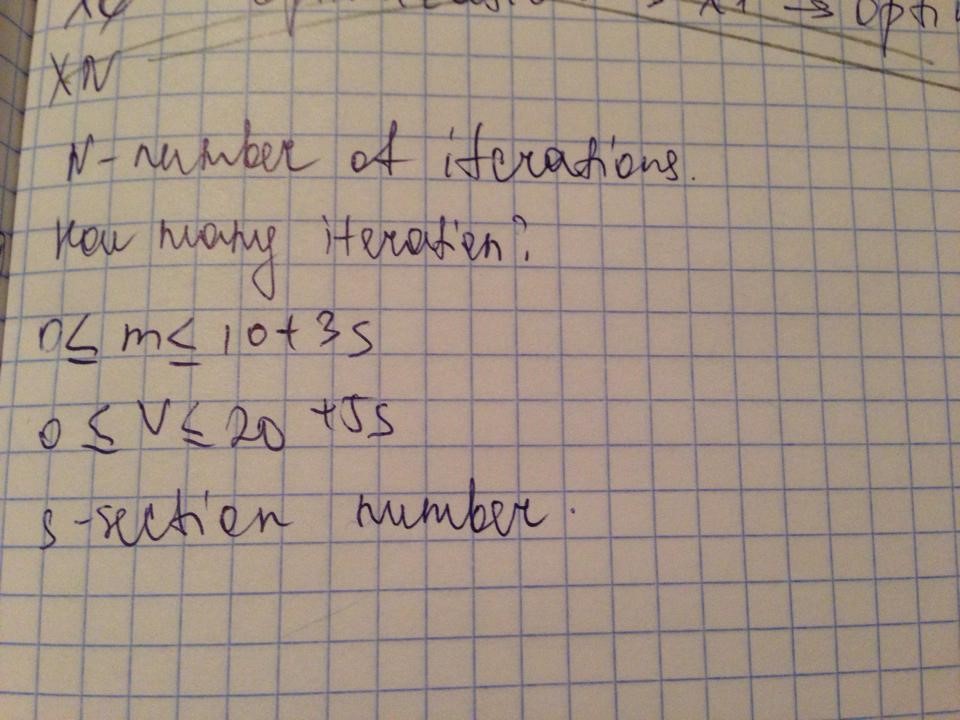 XN
N-number of iterations.
How many iteration?
0≤ m≤ 10+3s
0 ≤ V≤ 20 +5s
s-section number.